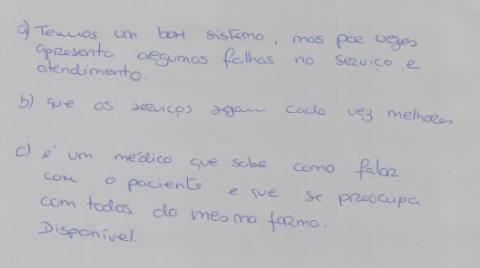 a) Temos um bom sistema, mas por vezes
apresenta algumas falhas no serviço e
atendimento.
b) que os serviços sejam cada vez melhores
c) é um médico que sabe como falar
com o paciente e que se preocupa
com todos da mesma forma.
Disponível.